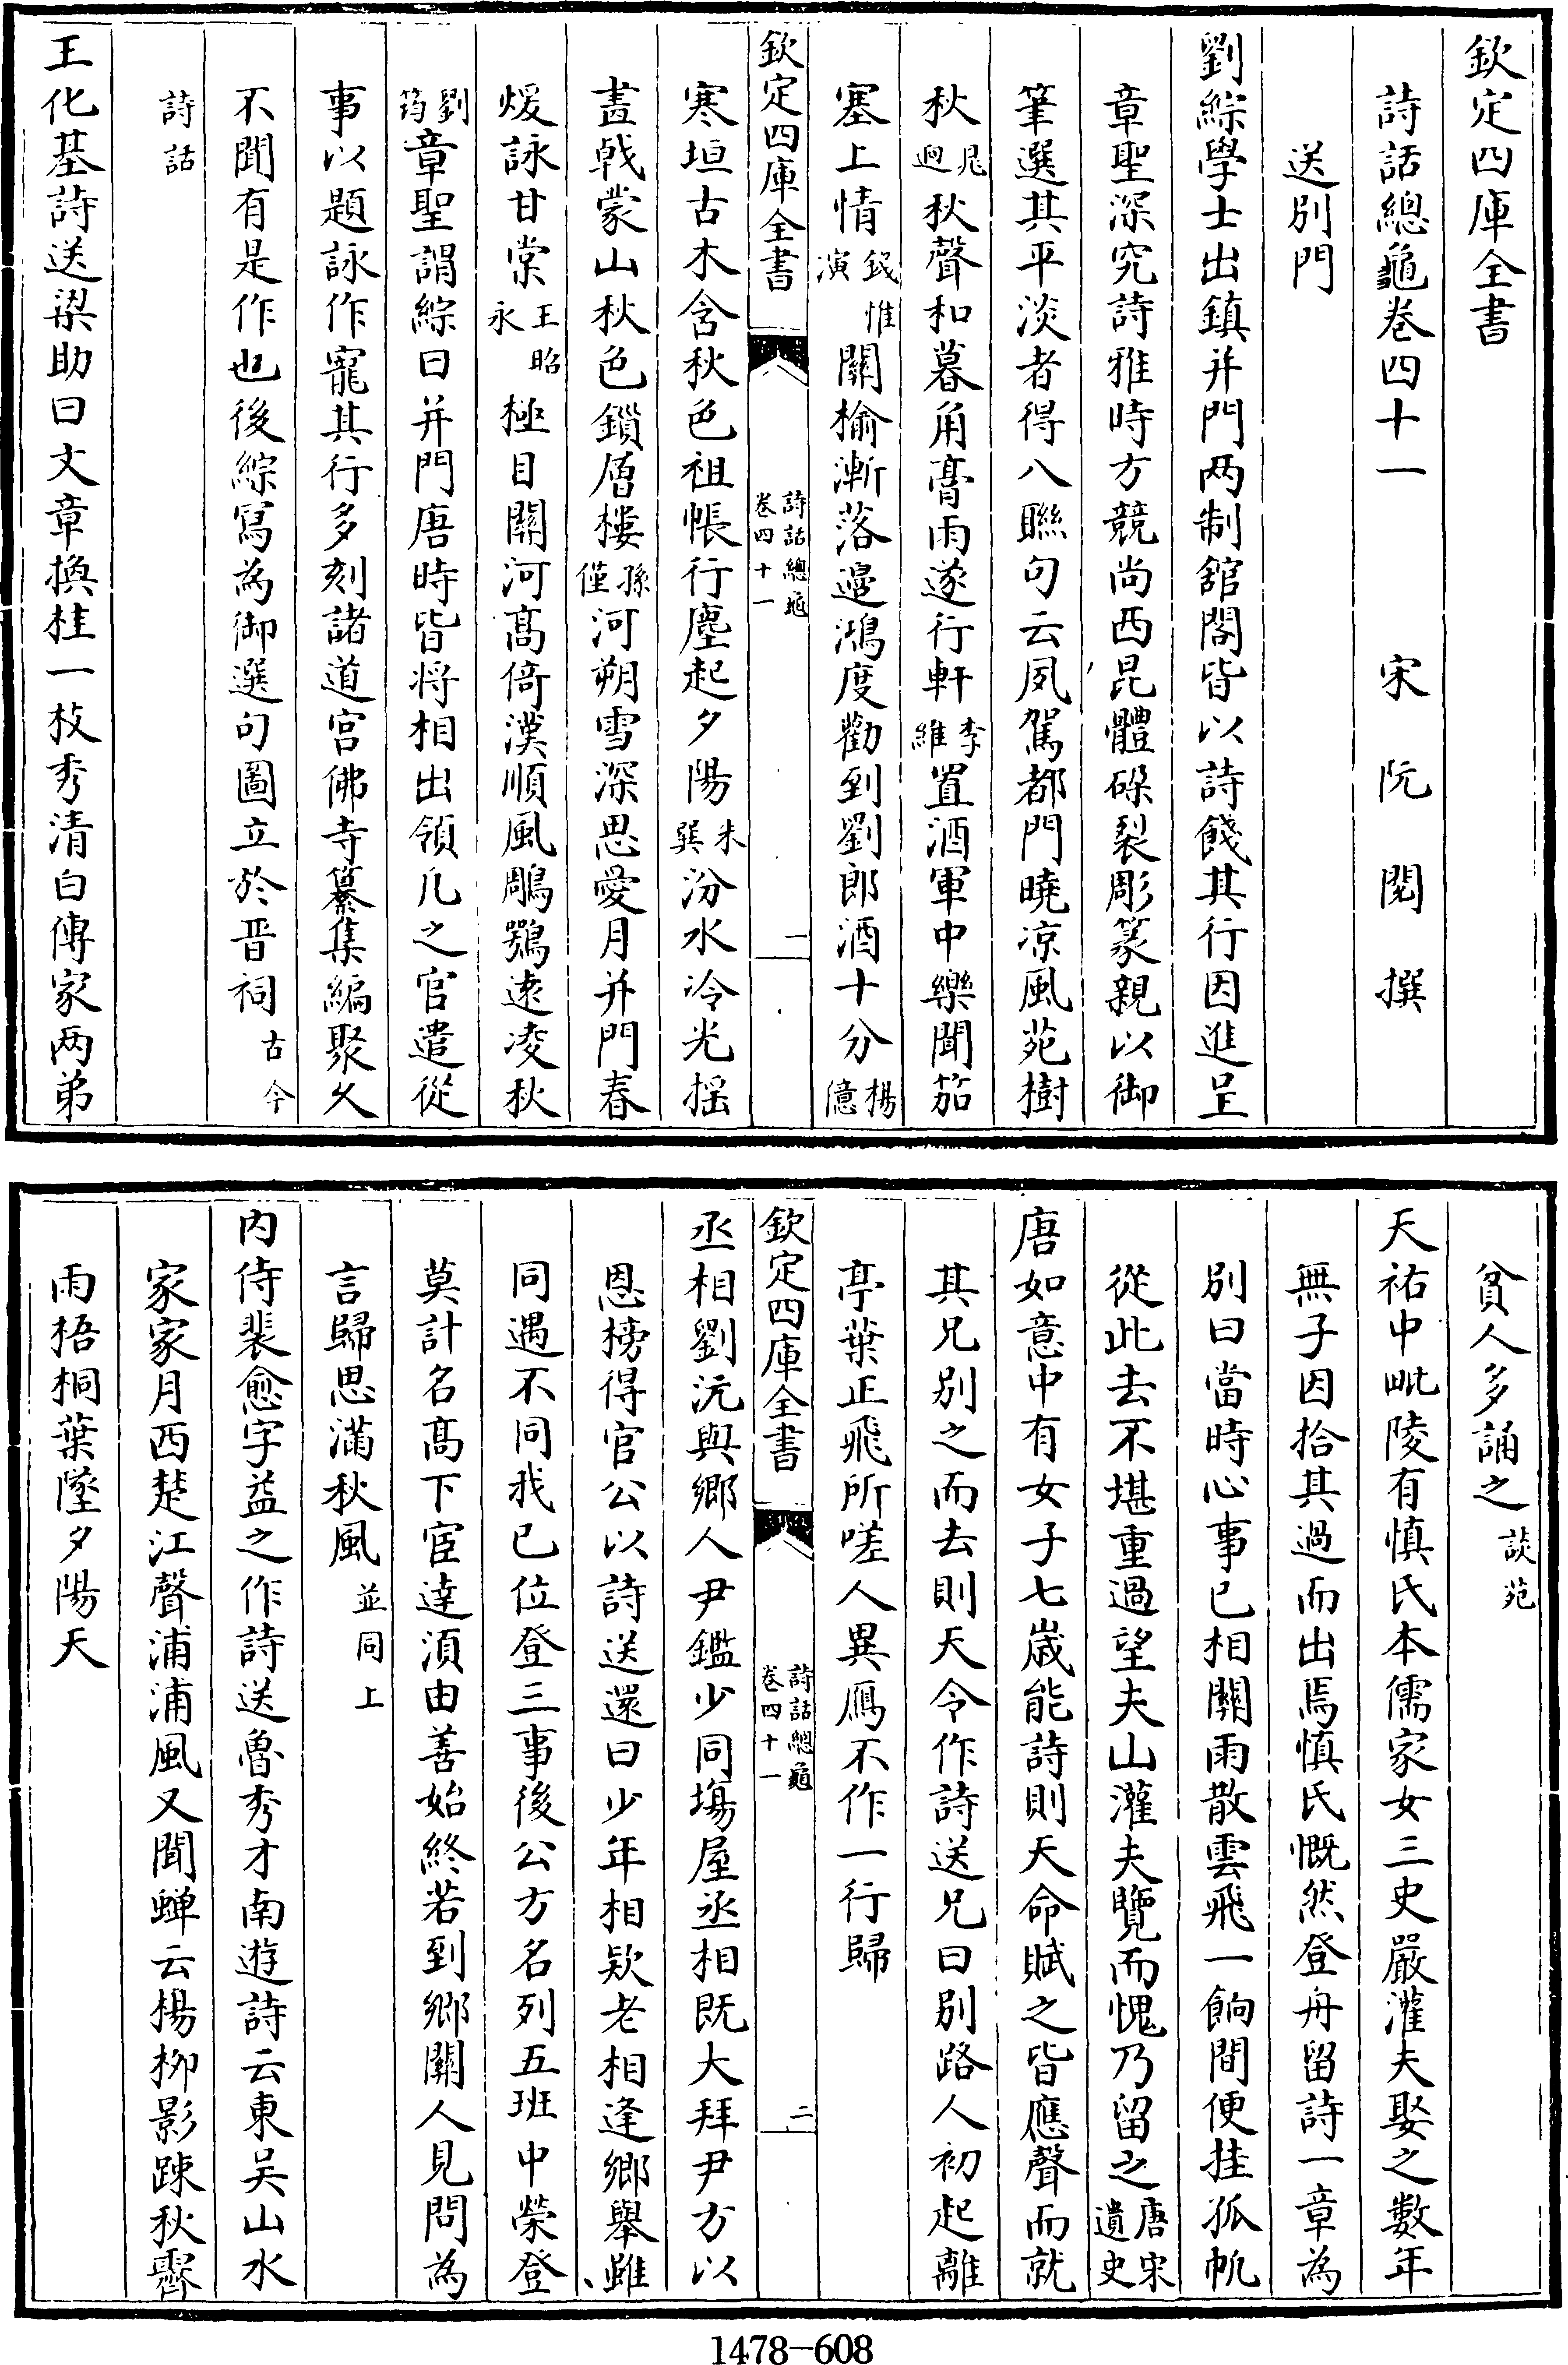 欽定四庫全書
詩話總龜卷四十一　宋　阮　閱　撰
送別門
劉綜學士出鎮并門两制舘閣皆以詩餞其行因進呈
章聖深究詩雅時方競尚西昆體磔裂彫篆親以御
筆選其平淡者得八聯句云夙駕都門曉凉風苑樹
秋晁迥秋聲和暮角膏雨逐行軒李維置酒軍中樂聞笳
塞上情錢惟演關榆漸落邉鴻度勸到劉郎酒十分楊億
欽定四庫全書　詩話總龜卷四十一　一
寒垣古木含秋色祖帳行塵起夕陽朱巽汾水冷光揺
畫戟蒙山秋色鎖層樓孫僅河朔雪深思愛月并門春
煖詠甘棠王昭永極目關河髙倚漢順風鵰鶚逺凌秋
劉筠章聖謂綜曰并門唐時皆将相出領凡之官遣從
事以題詠作寵其行多刻諸道宫佛寺纂集編聚久
不聞有是作也後綜寫為御選句圖立於晋祠古今
詩話
王化基詩送梁助曰文章換桂一枝秀清白傳家两弟
貧人多誦之談苑
天祐中毗陵有慎氏本儒家女三史嚴灌夫娶之數年
無子因拾其過而出焉慎氏慨然登舟留詩一章為
别曰當時心事已相關雨散雲飛一餉間便挂孤帆
從此去不堪重過望夫山灌夫覽而愧乃留之唐宋遺史
唐如意中有女子七嵗能詩則天命賦之皆應聲而就
其兄别之而去則天令作詩送兄曰别路人初起離
亭葉正飛所嗟人異鴈不作一行歸
欽定四庫全書　詩話總龜卷四十一　二
丞相劉沆與鄉人尹鑑少同場屋丞相既大拜尹方以
恩榜得官公以詩送還曰少年相欵老相逢鄉舉雖
同遇不同我已位登三事後公方名列五班中榮登
莫計名髙下宦達湏由善始終若到鄉關人見問為
言歸思滿秋風並同上
内侍裴愈字益之作詩送魯秀才南遊詩云東吴山水
家家月西楚江聲浦浦風又聞蟬云楊栁影踈秋霽
雨梧桐葉墜夕陽天
1478-608